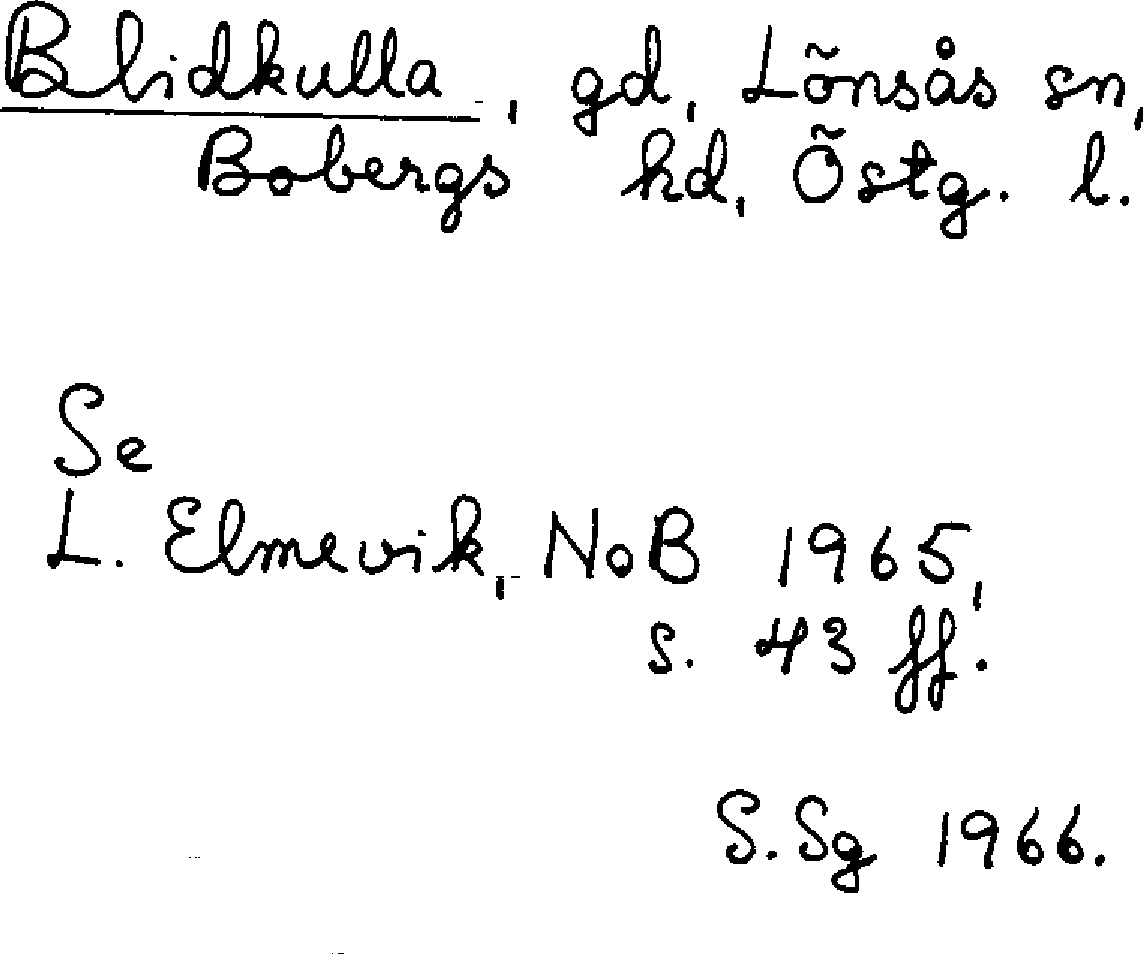 Blidkulla, gd, Lönsås sn,
Bobergs hd, Östg. l.
Se
L. Elmevik, NoB 1965,
s. 43 ff.
S. Sg 1966.